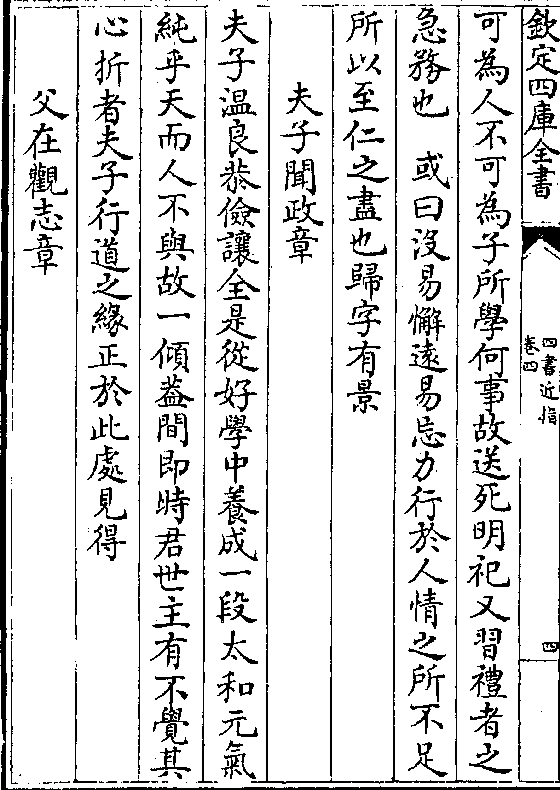 欽定四庫全書
四書近指
卷四
四
可為人不可為子所學何事故送死明祀又習禮者之
急務也　或曰沒易懈遠易忘力行於人情之所不足
所以至仁之盡也歸字有景
夫子聞政章
夫子温良恭儉讓全是從好學中養成一段太和元氣
純乎天而人不與故一傾葢間即時君世主有不覺其
心折者夫子行道之緣正於此處見得
父在觀志章